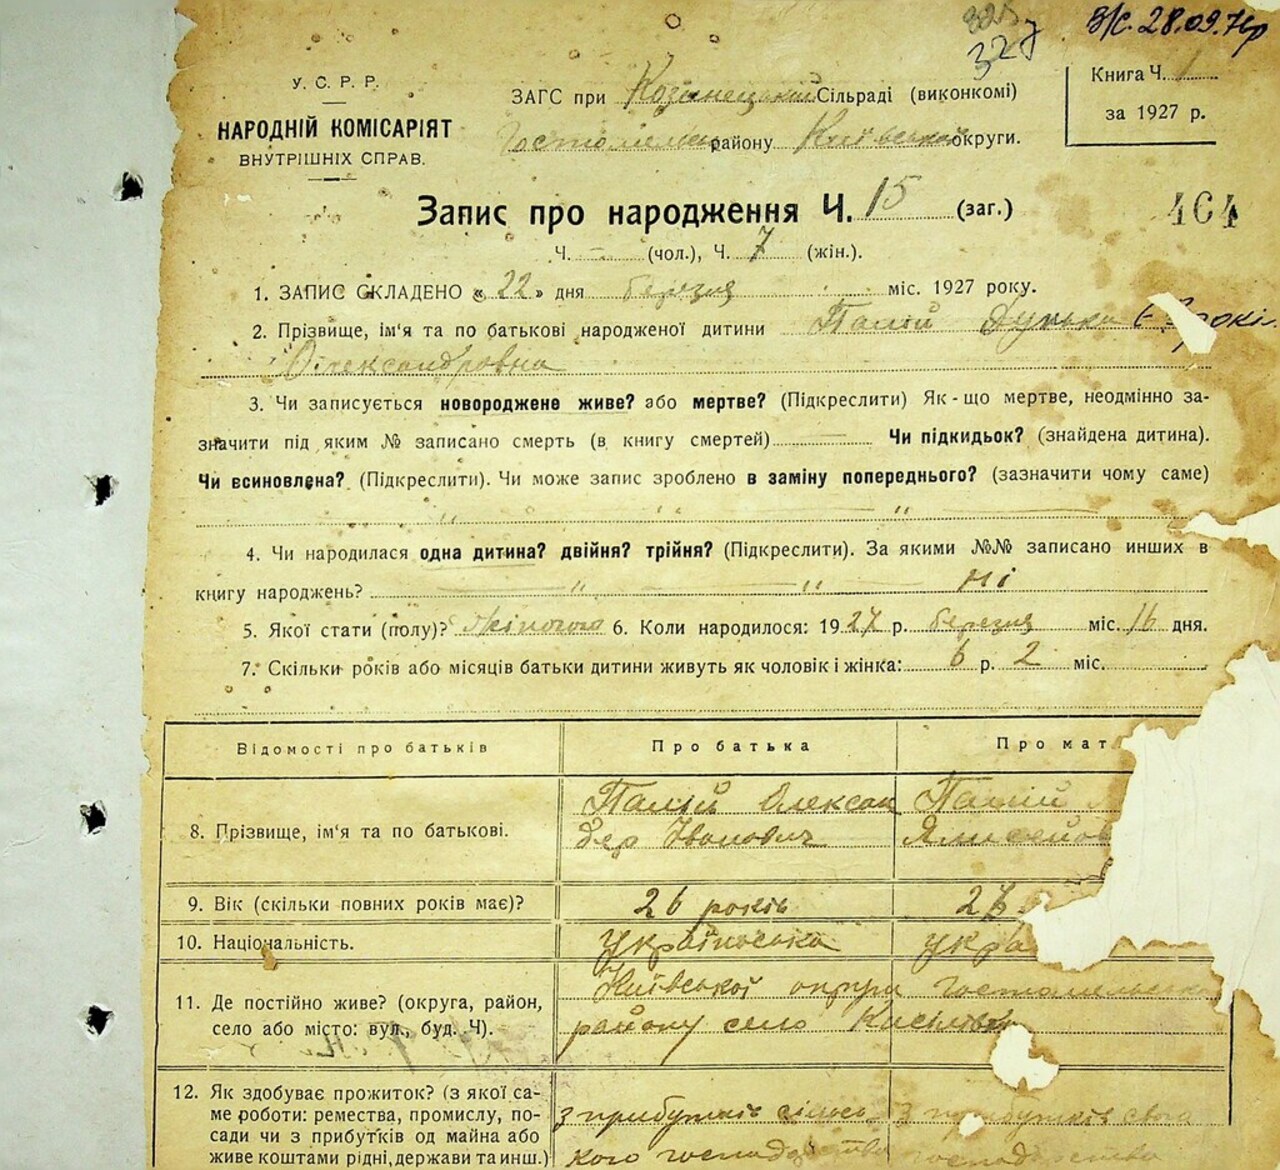 327
З/С. 28.09.74р
У. С. Р. Р.
НАРОДНІЙ КОМІСАРІЯТ
ВНУТРІШНІХ СПРАВ.
ЗАГС при Козинецькій Сільраді (виконкомі)
району Київської округи.
Книга Ч. 1
за 1927 р.
Запис про народження Ч. 15 (заг.)
464
Ч. — (чол.), Ч. 7 (жін.).
1. ЗАПИС СКЛАДЕНО « 22 » дня березня міс. 1927 року.
2. Прізвище, ім'я та по батькові народженої дитини Палій
Олександровна
3. Чи записується новороджене живе? або мертве? (Підкреслити) Як-що мертве, неодмінно за-
значити під яким № записано смерть (в книгу смертей) — Чи підкидьок? (знайдена дитина).
Чи всиновлена? (Підкреслити). Чи може запис зроблено в заміну попереднього? (зазначити чому саме)
" " "
4. Чи народилася одна дитина? двійня? трійня? (Підкреслити). За якими №№ записано инших в
книгу народжень? — " — " — ні
5. Якої стати (полу)? жіночого 6. Коли народилося: 1927 р. березня міс. 16 дня.
7. Скільки років або місяців батьки дитини живуть як чоловік і жінка: 6 р. 2 міс.
Відомості про батьків Про батька Про мат
8. Прізвище, ім'я та по батькові. Палій Олексан Палій
дер Іванович
9. Вік (скільки повних років має)? 26 років 27
10. Національність. українська укра
11. Де постійно живе? (округа, район, Київської округи Гостомельського
село або місто: вул., буд. Ч). району село
12. Як здобуває прожиток? (з якої са-
ме роботи: ремества, промислу, по- з прибутків сільсь з прибутків свого
сади чи з прибутків од майна або
живе коштами рідні, держави та инш.) кого господарства господарства